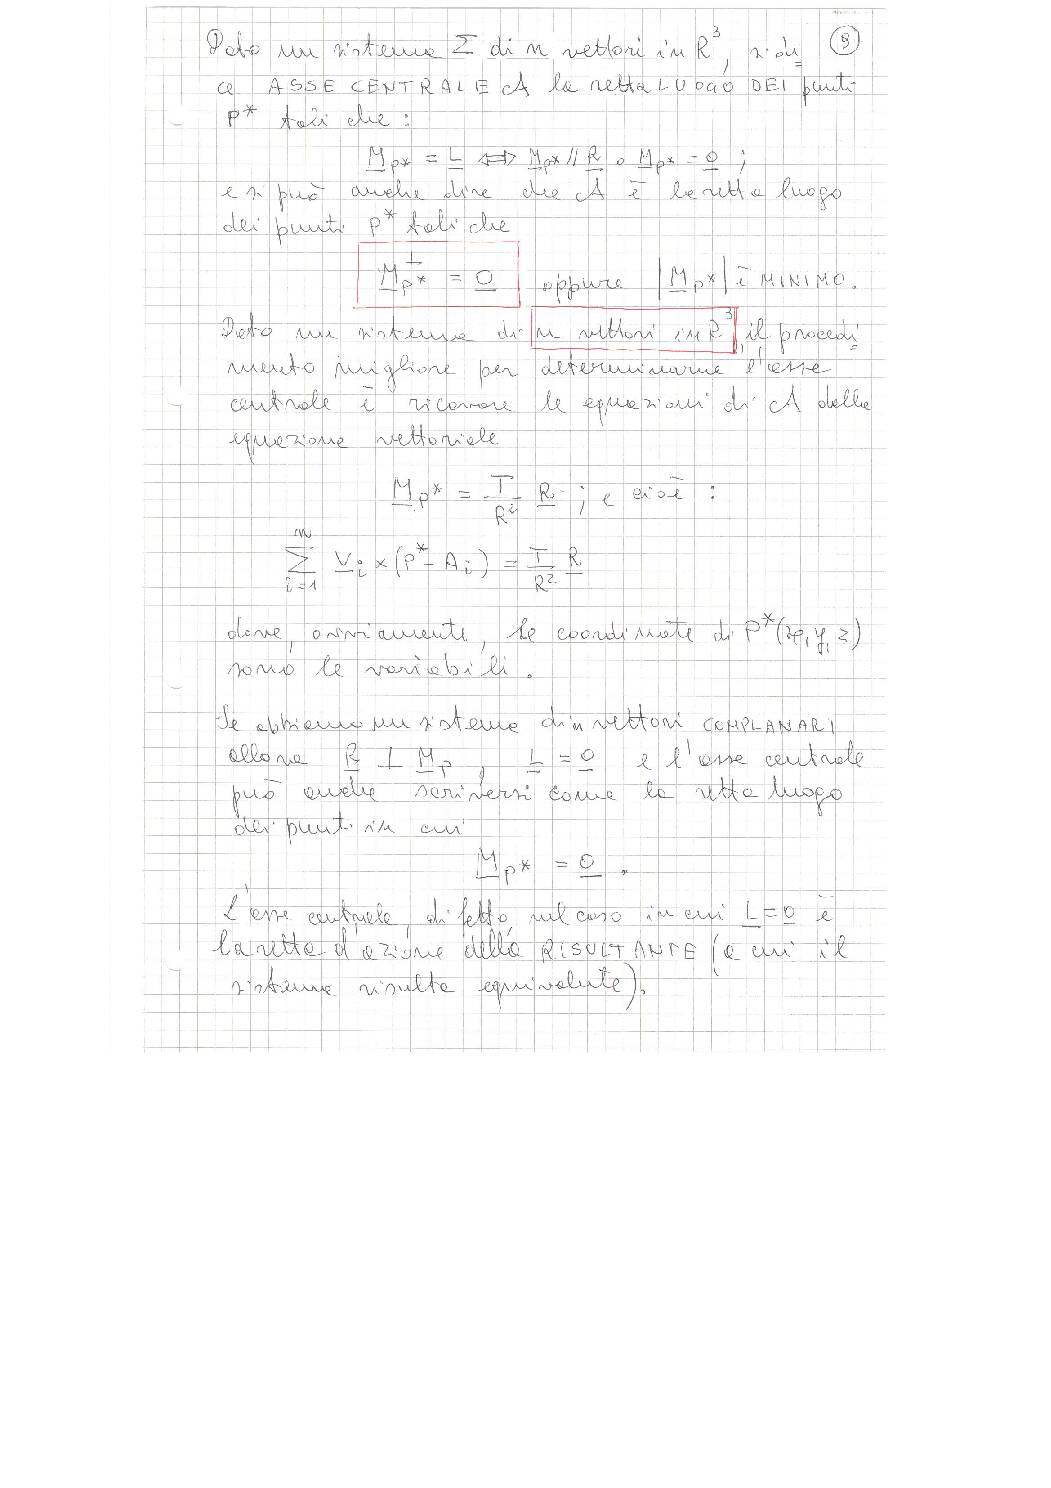 Dato un sistema Σ di n vettori in R³, si di= ⑨
ce ASSE CENTRALE A la retta LUOGO DEI punti
P* tali che:
M_P* = L ⇔ M_P* // R o M_P* = 0 ;
e si può anche dire che A è la retta luogo
dei punti P* tali che
M_P*^⊥ = 0 oppure |M_P*| è MINIMO.
Dato un sistema di n vettori in R³, il procedi=
mento migliore per determinarne l'asse
centrale è ricavare le equazioni di A dalla
equazione vettoriale
M_P* = T/R² R ; e cioè :
n
∑ V_i × (P* - A_i) = T/R² R
i=1
dove, ovviamente, le coordinate di P*(x, y, z)
sono le variabili.
Se abbiamo un sistema di n vettori COMPLANARI
allora R ⊥ M_P , L = 0 e l'asse centrale
può anche scriversi come la retta luogo
dei punti in cui
M_P* = 0 .
L'asse centrale, di fatto, nel caso in cui L = 0 è
la retta d'azione della RISULTANTE (a cui il
sistema risulta equivalente).